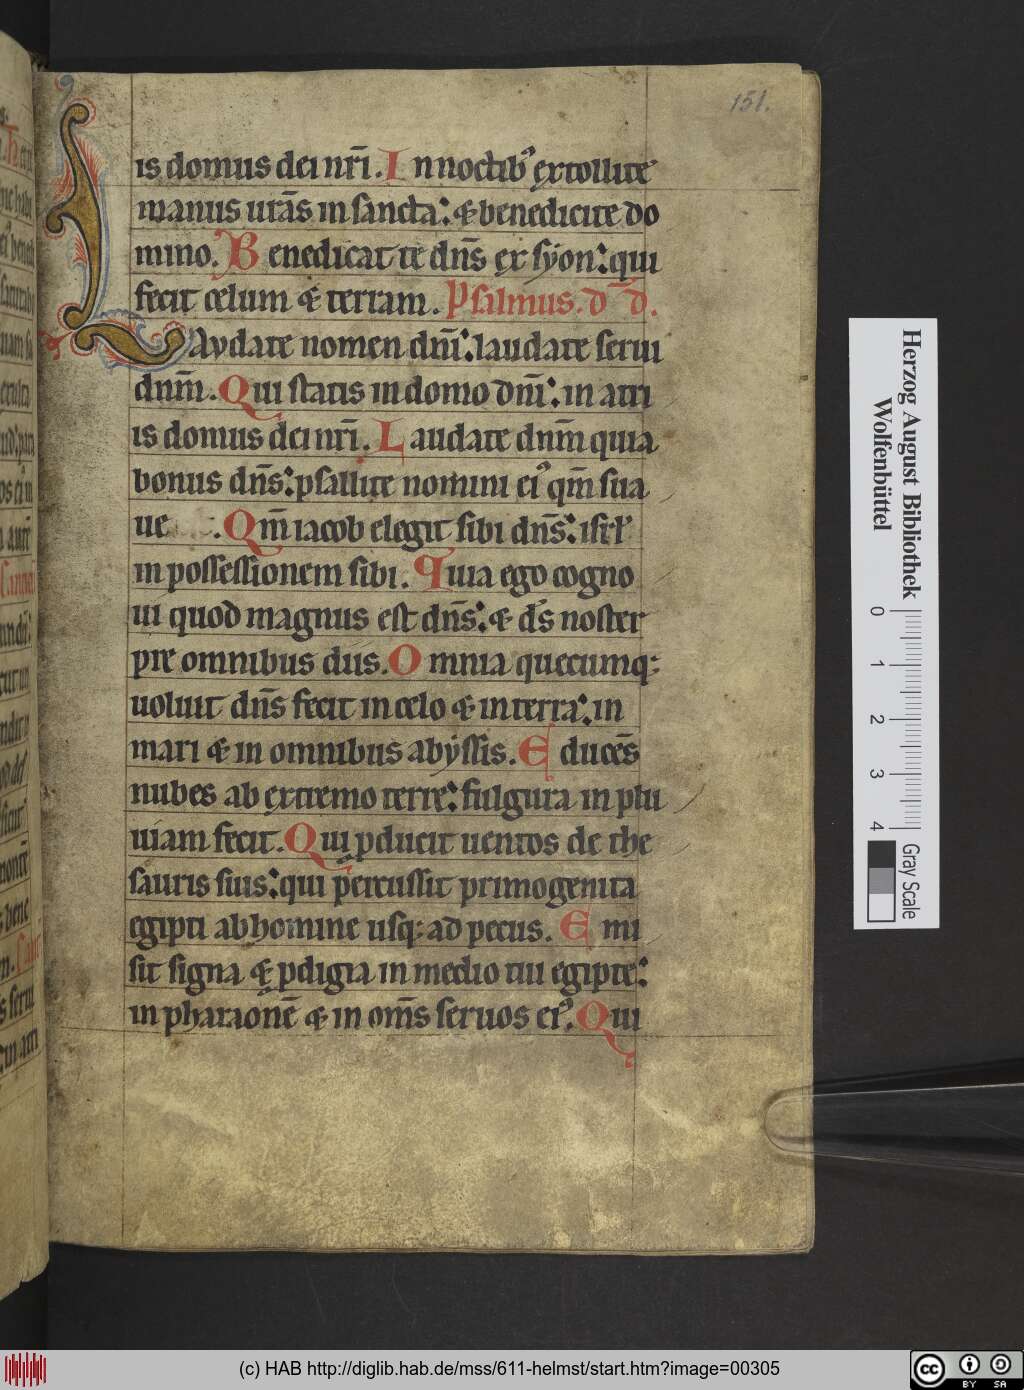 151.
is domus dei nr̄i. In noctib⁹ extollite
manus ur̄as in sancta: & benedicite do
mino. Benedicat te dn̄s ex syon: qui
fecit celum & terram. Psalmus. d̄ d̄.
Laudate nomen dn̄i: laudate serui
dnm̄. Qui statis in domo dn̄i: in atri
is domus dei nr̄i. Laudate dnm̄ quia
bonus dn̄s: psallite nomini ei⁹ qm̄ sua
ue. Qm̄ iacob elegit sibi dn̄s: isrl̄
in possessionem sibi. Quia ego cogno
ui quod magnus est dn̄s: & ds̄ noster
pre omnibus diis. Omnia quecumq:
uoluit dn̄s fecit in celo & in terra: in
mari & in omnibus abyssis. Educēs
nubes ab extremo terre: fulgura in plu
uiam fecit. Qui ꝓducit uentos de the
sauris suis: qui p̄cussit primogenita
egipti ab homine usq: ad pecus. Emi
sit signa & ꝓdigia in medio tui egipte:
in pharaonē & in om̄s seruos ei⁹. Qui
Herzog August Bibliothek
Wolfenbüttel
0 1 2 3 4
Gray Scale
(c) HAB http://diglib.hab.de/mss/611-helmst/start.htm?image=00305
cc BY SA